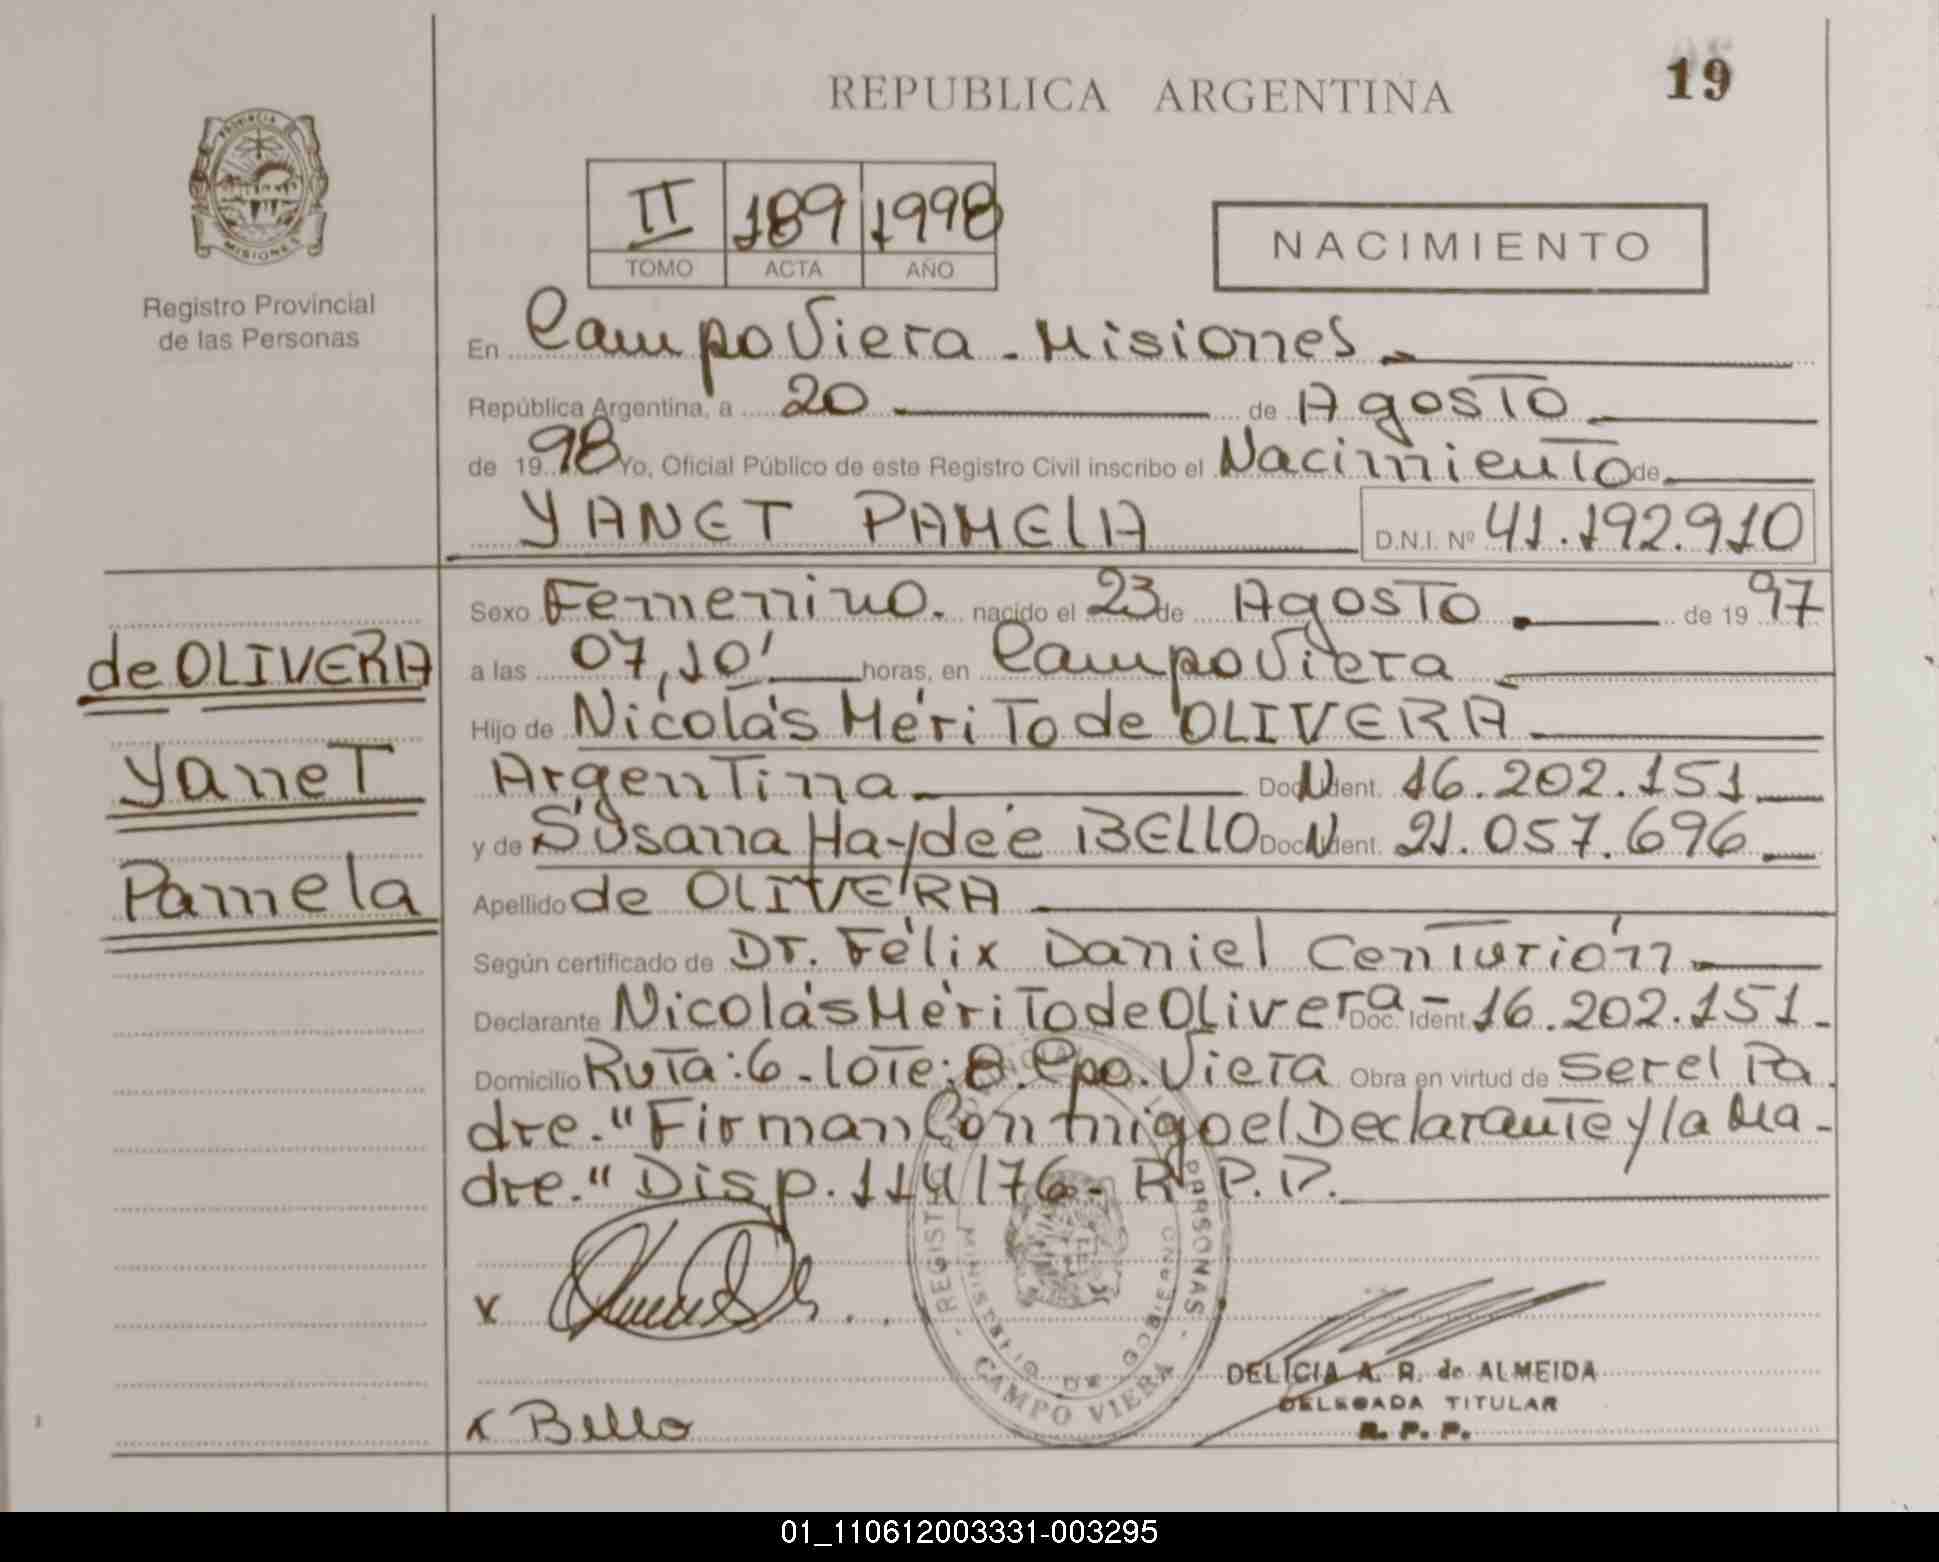 REPUBLICA ARGENTINA
19
PROVINCIA DE
MISIONES
Registro Provincial
de las Personas
II 189 1998
TOMO ACTA AÑO
NACIMIENTO
En Campo Viera - Misiones
República Argentina, a 20 de Agosto
de 1998 Yo, Oficial Público de este Registro Civil inscribo el Nacimiento de
YANET PAMELA D.N.I. Nº 41.192.910
Sexo Femenino. nacido el 23 de Agosto de 1997
a las 07,10' horas, en Campo Viera
Hijo de Nicolás Mérito de OLIVERA
Argentina Doc. Ident. N 16.202.151
y de Susana Haydée BELLO Doc. Ident. N 21.057.696
Apellido de OLIVERA
Según certificado de Dr. Félix Daniel Centurión
Declarante Nicolás Mérito de Olivera - Doc. Ident. 16.202.151.
Domicilio Ruta: 6 - lote: 8. Cpo. Viera Obra en virtud de ser el Pa
dre. "Firman Conmigo el Declarante y la Ma-
dre." Disp. 114/76 - R.P.P.
de OLIVERA
Yanet
Pamela
REGISTRO PROVINCIAL DE LAS PERSONAS - CAMPO VIERA -
MINISTERIO DE GOBIERNO
x
DELICIA A. R. de ALMEIDA
DELEGADA TITULAR
R. P. P.
x Bello
01_110612003331-003295